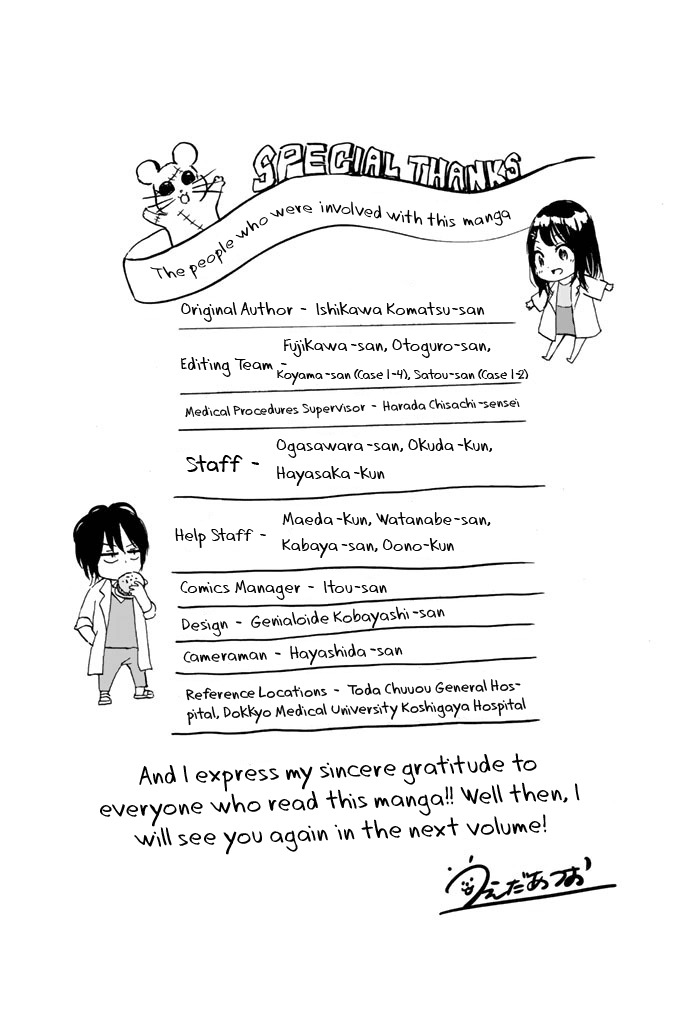 SPECIAL THANKS
The people who were involved with this manga
Original Author - Ishikawa Komatsu-san
Editing Team -
Fujikawa-san, Otoguro-san,
Koyama-san (Case 1-4), Satou-san (Case 1-2)
Medical Procedures Supervisor - Harada Chisachi-sensei
Staff -
Ogasawara-san, Okuda-kun,
Hayasaka-kun
Help Staff -
Maeda-kun, Watanabe-san,
Kabaya-san, Oono-kun
Comics Manager - Itou-san
Design - Genialoide Kobayashi-san
Cameraman - Hayashida-san
Reference Locations - Toda Chuuou General Hos-
pital, Dokkyo Medical University Koshigaya Hospital
And I express my sincere gratitude to
everyone who read this manga!! Well then, I
will see you again in the next volume!
うえだあつお